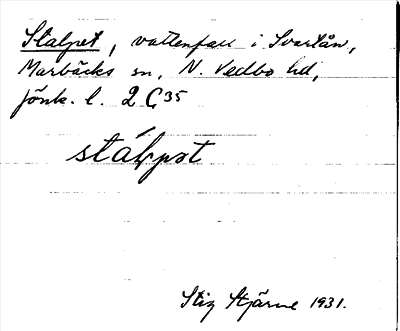 Stalpet, vattenfall i Svartån,
Marbäcks sn, N. Vedbo hd,
Jönk. l. 2 C 35
stálpət
Stig Stjärne 1931.